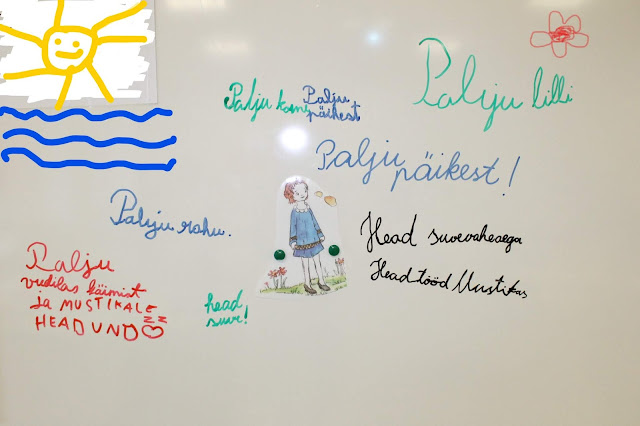 Palju lilli
Palju
Palju
päikest
Palju
päikest!
Palju rahu.
Head suvevaheaega
Head tööd Mustikas
Palju
käimist
ja MUSTIKALE
HEAD UND
ZZ
head
suve!